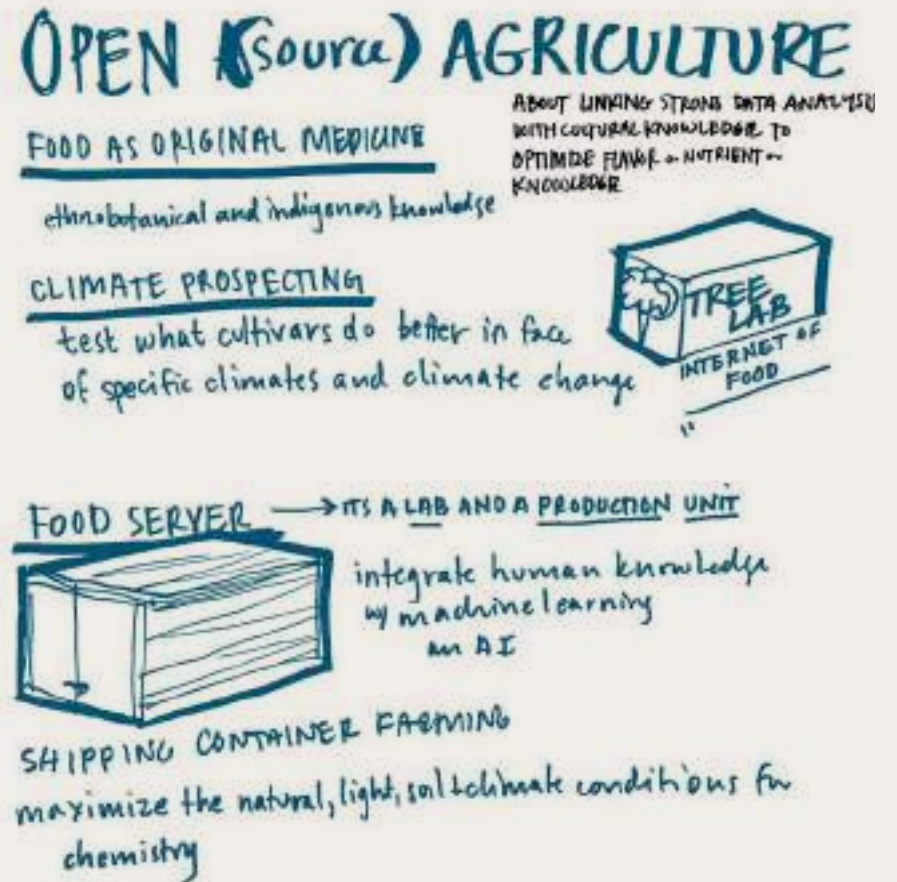 OPEN (Source) AGRICULTURE
ABOUT LINKING STRONG DATA ANALYSIS
WITH CULTURAL KNOWLEDGE TO
OPTIMIZE FLAVOR + NUTRIENT +
KNOWLEDGE
FOOD AS ORIGINAL MEDICINE
ethnobotanical and indigenous knowledge
CLIMATE PROSPECTING
test what cultivars do better in face
of specific climates and climate change
TREE
LAB
INTERNET OF
FOOD
FOOD SERVER → ITS A LAB AND A PRODUCTION UNIT
integrate human knowledge
w/ machine learning
an AI
SHIPPING CONTAINER FARMING
maximize the natural, light, soil + climate conditions for
chemistry